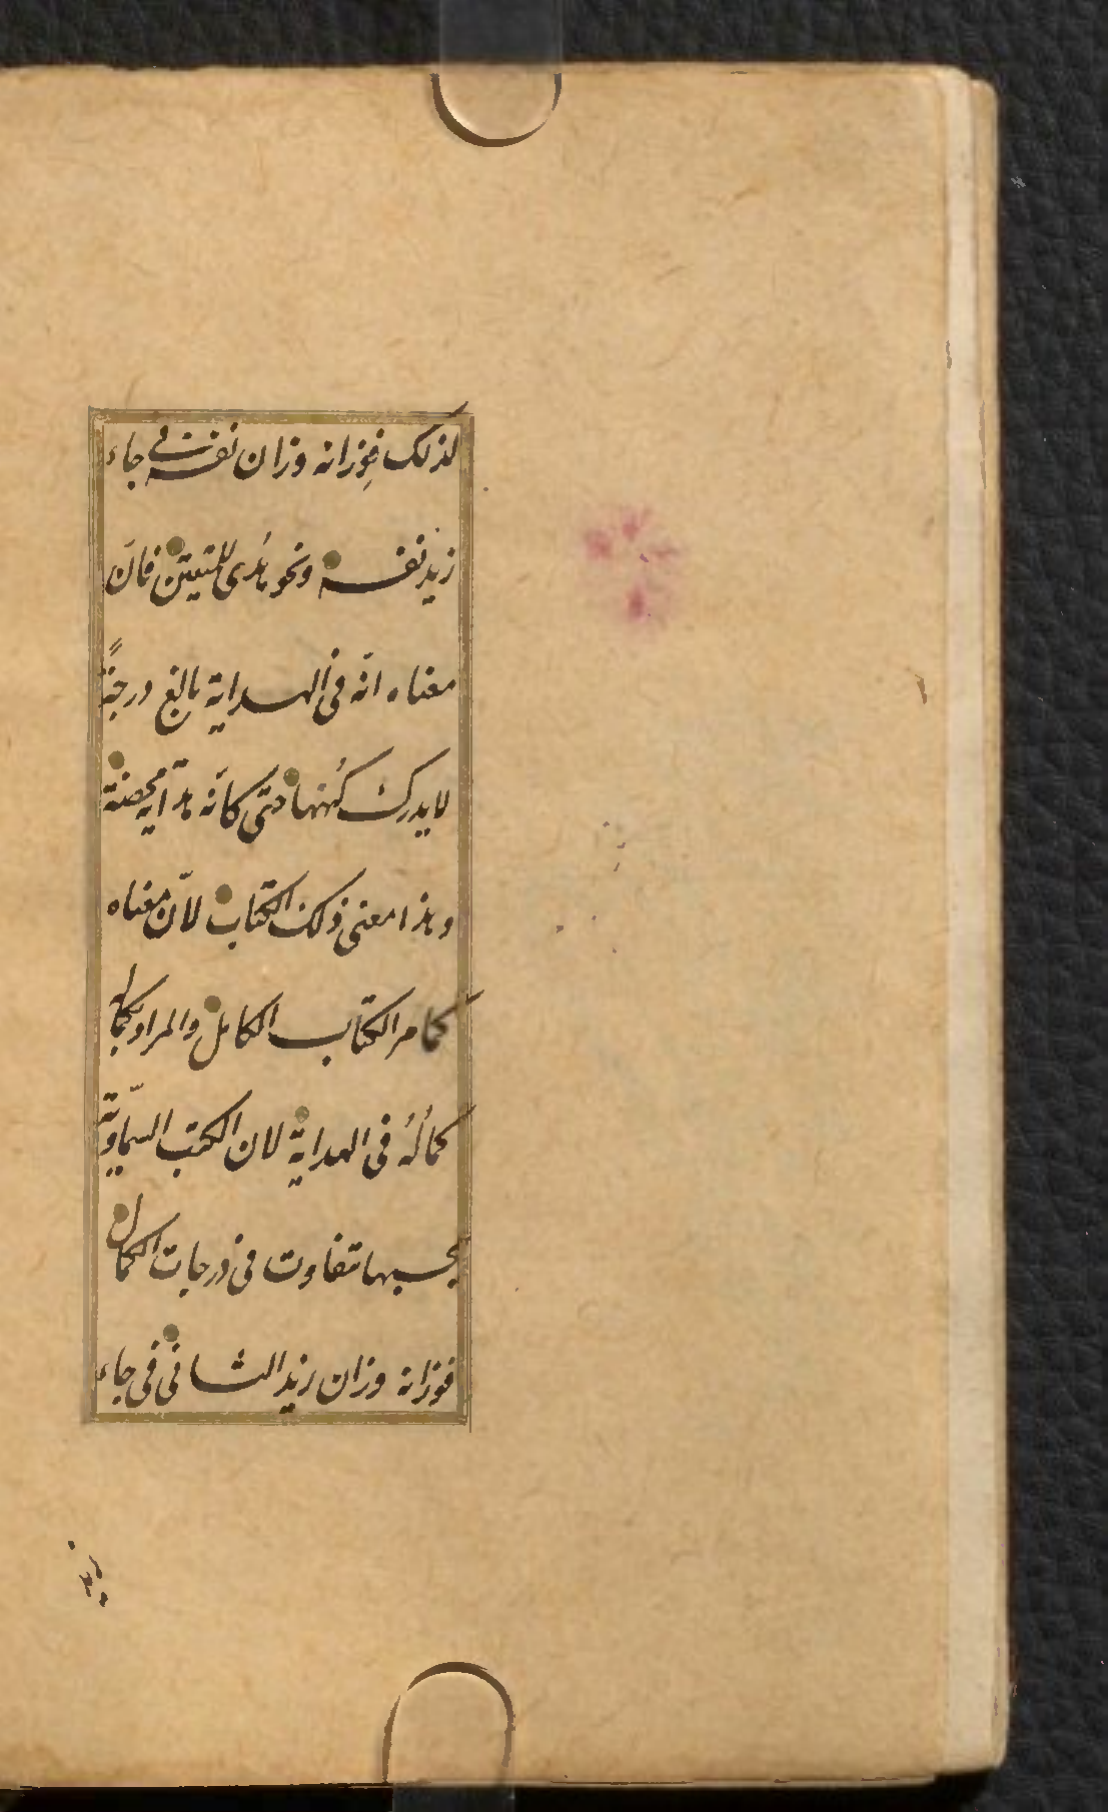 لذلك فوزانه وزان نفسه فى جاء
زيد نفسه ونحو هُدى للمتقين فانّ
معناه انّه فى الهداية بالغ درجةً
لا يدرك كُنهها حتى كانّه هدآية محضة
وهذا معنى ذلك الكتاب لانّ معناه
كما مر الكتاب الكامل والمراد بكماله
كمالُهُ فى الهداية لان الكتب السماويّة
بحسبها تتفاوت فى درجات الكمال
فوزانه وزان زيد الثانى فى جاء
زيد